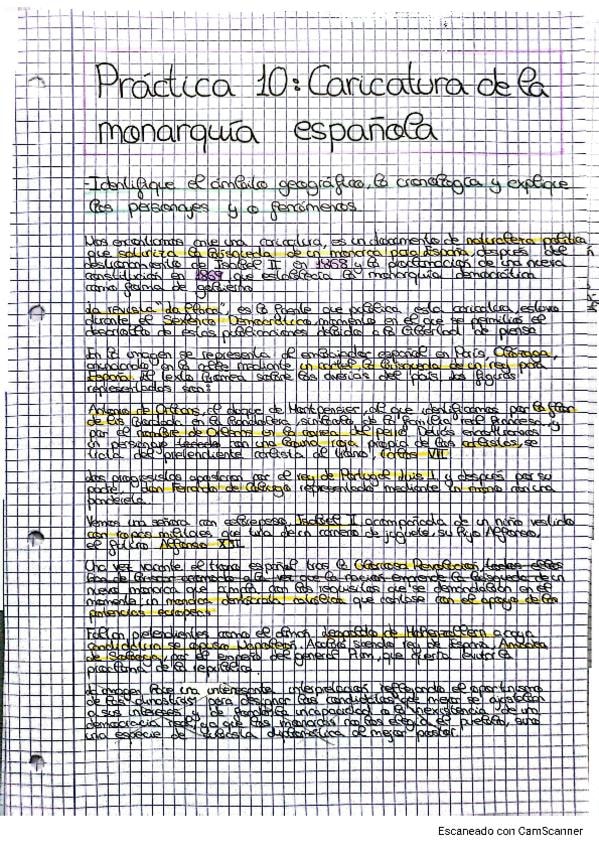 Práctica 10: Caricatura de la
monarquía española
-Identifique el ámbito geográfico, la cronología y explique
los personajes y o fenómenos
Nos encontramos ante una caricatura, es un documento de naturaleza política
que satiriza la búsqueda de un monarca para España, después del
destronamiento de Isabel II en 1868 y la proclamación de una nueva
constitución en 1869 que establecía la monarquía democrática
como forma de gobierno
La revista "La Flaca", es la fuente que publica esta caricatura, estuvo
durante el Sexenio Democrático, momento en el que se permitías el
desarrollo de estas publicaciones debido a la libertad de prensa
En la imagen se representa el embajador español en París, Olózaga,
anunciando en la calle mediante un cartel la búsqueda de un rey para
España. El texto sobre las averías del país, las figuras
representadas son:
Antonio de Orleans, el duque de Montpensier, al que identificamos por la flor
de Lis en la , símbolo de la familia real francesa, y
por el nombre de Orleans en la correa del perro. Detrás encontramos
un personaje con una boina roja propia de los carlistas, se
trata del pretendiente carlista al trono, Carlos VII.
Los progresistas apostaron por el rey de Portugal Luis I, y después por su
padre, don Fernando de Coburgo representado mediante un mono con una
pandereta.
Vemos una señora con sobrepeso, Isabel II acompañada de un niño vestido
con ropas militares que tira de un carnero de juguete, su hijo Alfonso,
el futuro Alfonso XII.
Una vez vacante el trono español tras la Gloriosa Revolución,
la búsqueda de un
nuevo monarca que cumpla con los requisitos que se demandaban en ese
momento, un monarca demócrata, católico que contase con el apoyo de las
potencias europeas.
Faltan pretendientes como el alemán Leopoldo de Hohenzollern a cuya
candidatura se opuso Napoleón. Acabó siendo rey de España, Amadeo
de Saboya, por el empeño del general Prim, que quería evitar la
proclama de la república.
La imagen hace una interesante interpretación reflejando el oportunismo
de las dinastías para designar los candidatos que mejor se ajustaban
a sus intereses y de fomentar la inexistencia de una
democracia real, ya que los monarcas no los elegía el pueblo, sino
una especie de "subasta diplomática al mejor postor."
Escaneado con CamScanner